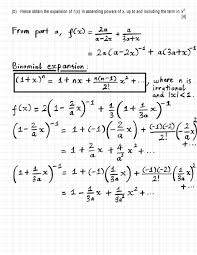 (b) Hence obtain the expansion of f(x) in ascending powers of x, up to and including the term in x².
[4]
From part a, f(x) = 2a/(a-2x) + a/(3a+x)
= 2a(a-2x)⁻¹ + a(3a+x)⁻¹
Binomial expansion:
(1+x)ⁿ = 1 + nx + n(n-1)/2! x² + ..., where n is
irrational
and |x|<1.
f(x) = 2(1 - 2/a x)⁻¹ + 1/3(1 + 1/3a x)⁻¹
(1 - 2/a x)⁻¹ = 1 + (-1)(-2/a x) + (-1)(-2)/2! (-2/a x)² + ...
= 1 + 2/a x + 4/a² x² + ...
(1 + 1/3a x)⁻¹ = 1 + (-1)(1/3a x) + (-1)(-2)/2! (1/3a x)² + ...
= 1 - 1/3a x + 1/9a² x² - ...